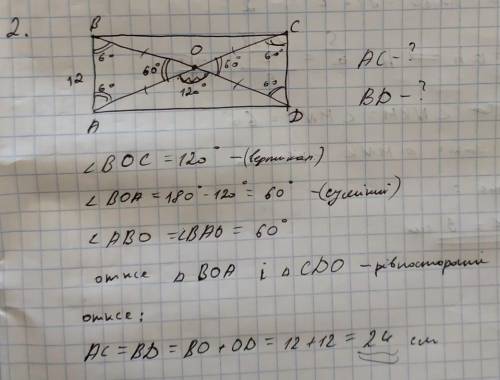 2.
B
C
O
6°
60°
60°
60°
12
6°
120°
60°
A
D
AC - ?
BD - ?
∠BOC = 120° - (вертикал)
∠BOA = 180° - 120° = 60° - (суміжні)
∠ABO = ∠BAO = 60°
отже △BOA і △CDO - рівносторонні
отже:
AC = BD = BO + OD = 12 + 12 = 24 см